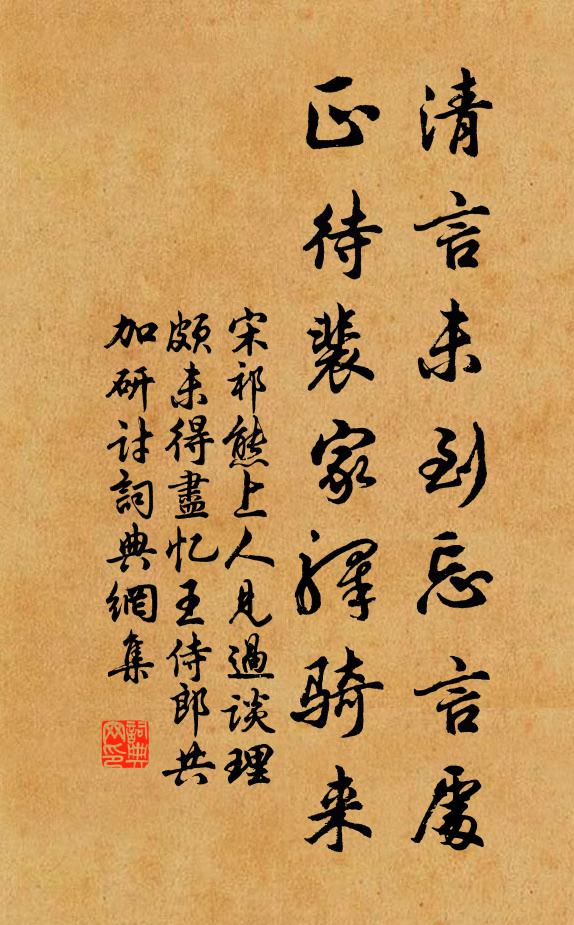 清言未到忘言處
正待裴家驛騎来
宋祁熊上人見過談理
頗未得盡忆王侍郎共
加研討詞典網集
詞典網印